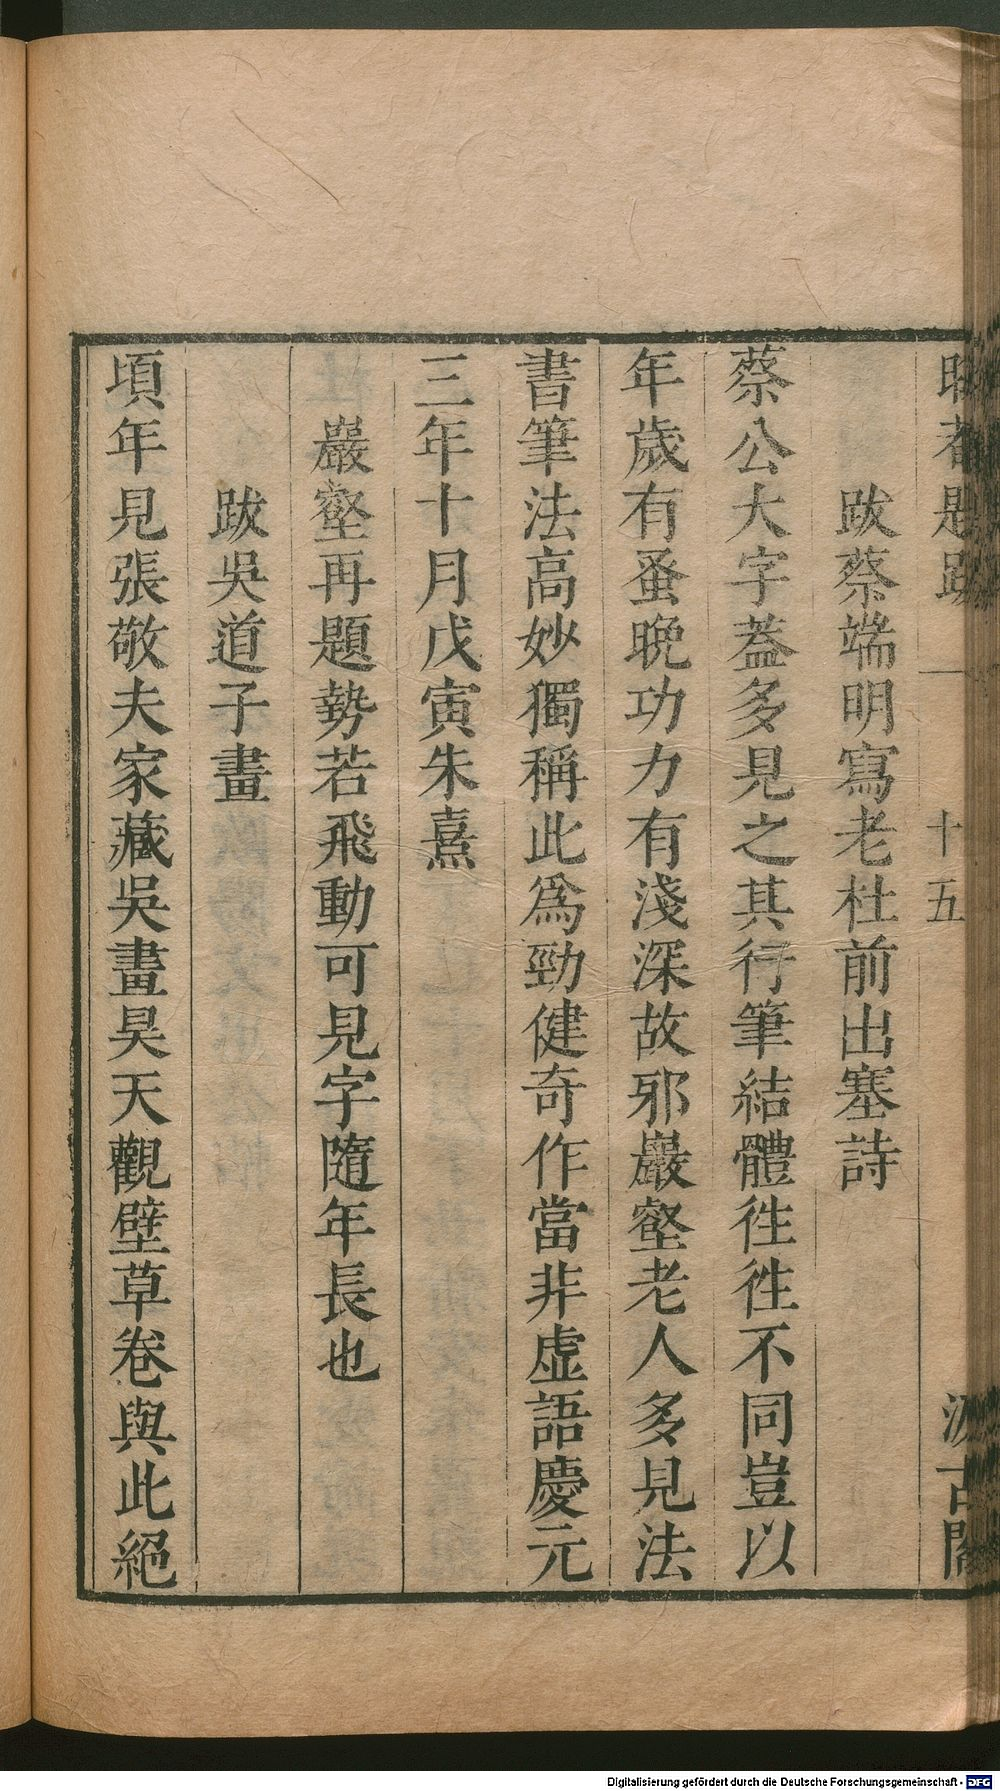 跋蔡端明寫老杜前出塞詩
蔡公大字葢多見之其行筆結體徃徃不同豈以
年歲有蚤晚功力有淺深故邪巖壑老人多見法
書筆法高妙獨稱此爲勁健奇作當非虛語慶元
三年十月戊寅朱熹
巖壑再題勢若飛動可見字隨年長也
跋吳道子畫
頃年見張敬夫家藏吳畫昊天觀壁草卷與此絕
十五
Digitalisierung gefördert durch die Deutsche Forschungsgemeinschaft - DFG